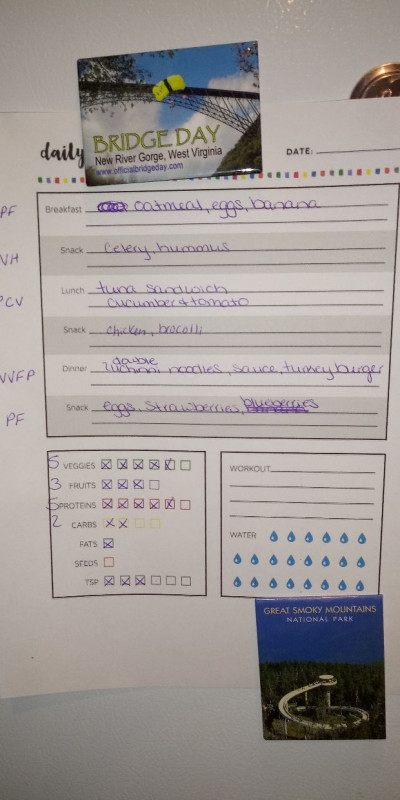 BRIDGE DAY
New River Gorge, West Virginia
www.officialbridgeday.com
daily
DATE:
PF
Breakfast oatmeal, eggs, banana
VH
Snack celery, hummus
PCV
Lunch tuna sandwich
cucumber & tomato
Snack chicken, brocolli
VVFP
double
Dinner zuchinni noodles, sauce, turkey burger
PF
Snack eggs, strawberries, blueberries
5 VEGGIES
3 FRUITS
5 PROTEINS
2 CARBS
FATS
SEEDS
TSP
WORKOUT
WATER
GREAT SMOKY MOUNTAINS
NATIONAL PARK